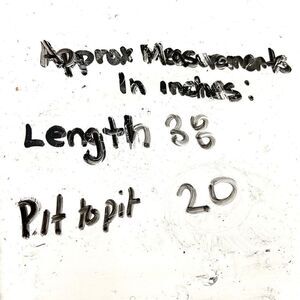 Approx Measurements
In inches:
Length 38
Pit to pit 20